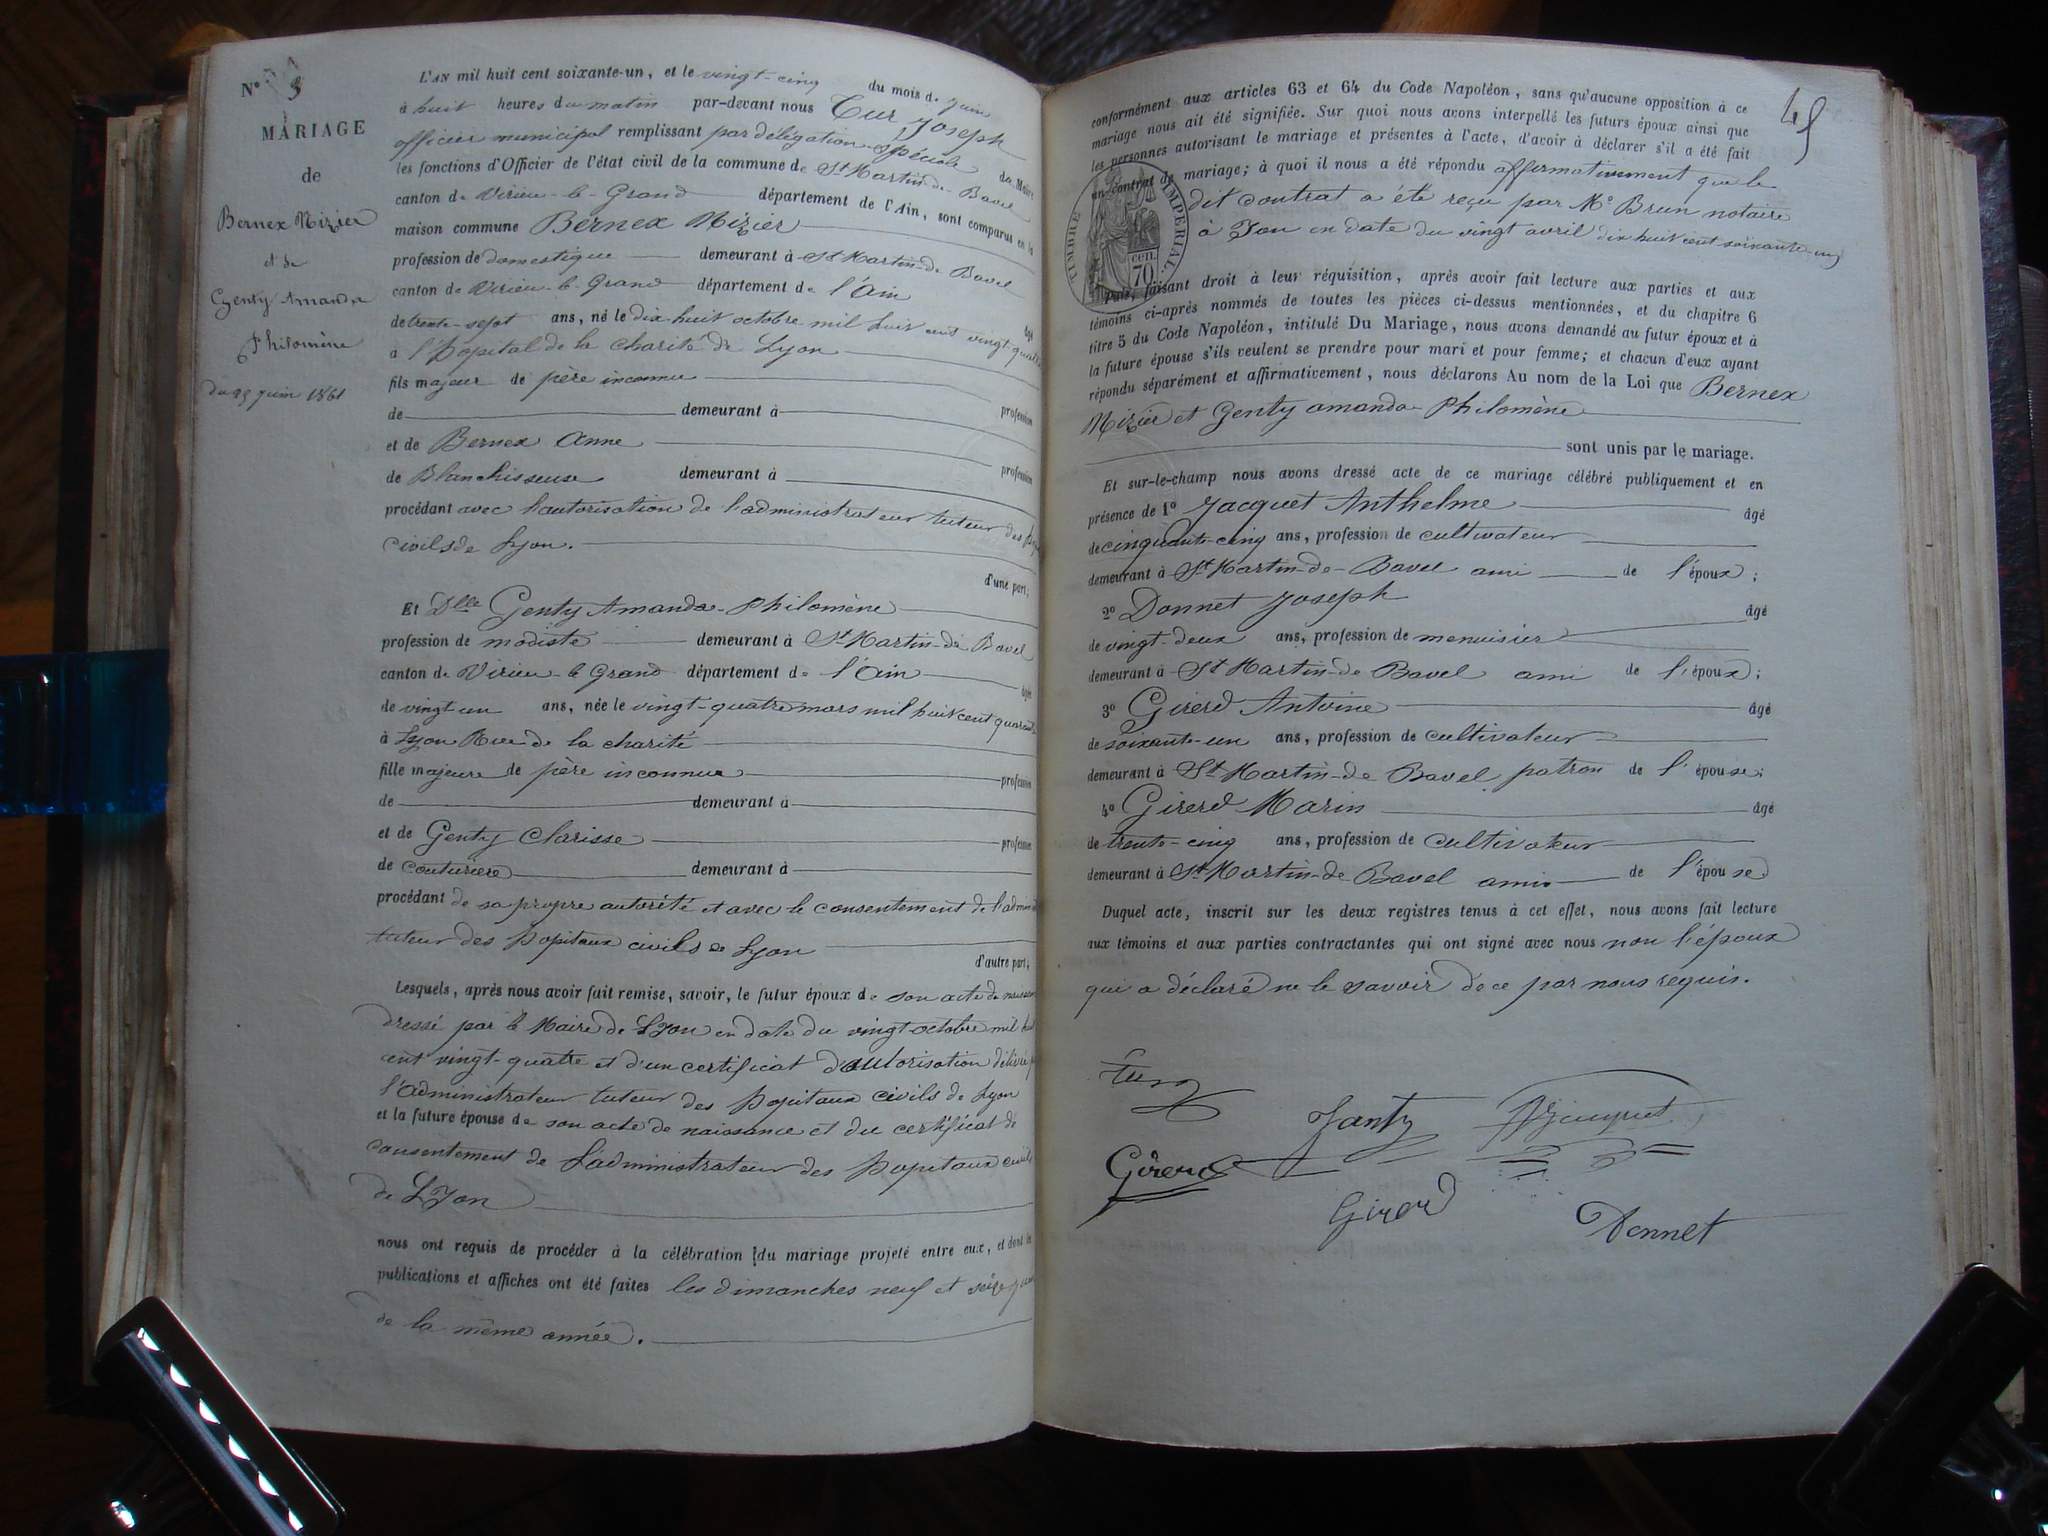 N° 3
MARIAGE
de
Bernex Mizier
et de
Genty Amanda
Philomène
du 25 juin 1861
L'AN mil huit cent soixante-un, et le vingt-cinq du mois de juin
à huit heures du matin par-devant nous Tur Joseph
officier municipal remplissant par délégation spéciale du Maire
les fonctions d'Officier de l'état civil de la commune de St Martin-de-Bavel
canton de Virieu-le-Grand département de l'Ain, sont comparus en la
maison commune Bernex Mizier
profession de domestique demeurant à St Martin-de Bavel
canton de Virieu-le-Grand département de l'Ain âgé
de trente-sept ans, né le dix-huit octobre mil huit cent vingt-quatre
à l'hopital de la charité de Lyon
fils majeur de père inconnu profession
de demeurant à
et de Bernex Anne profession
de Blanchisseuse demeurant à
procédant avec l'autorisation de l'administrateur tuteur des
civils de Lyon.
d'une part;
Et Dlle Genty Amanda-Philomène
profession de modiste demeurant à St Martin-de Bavel
canton de Virieu-le Grand département de l'Ain âgée
de vingt-un ans, née le vingt-quatre mars mil huit cent quarante
à Lyon Rue de la charité
fille majeure de père inconnue profession
de demeurant à
et de Genty Clarisse profession
de couturière demeurant à
procédant de sa propre autorité et avec le consentement de l'admin
tuteur des hopitaux civils de Lyon
d'autre part;
Lesquels, après nous avoir fait remise, savoir, le futur époux de son acte de naissance
dressé par le Maire de Lyon en date du vingt octobre mil huit
cent vingt-quatre et d'un certificat d'autorisation délivré
l'administrateur tuteur des hopitaux civils de Lyon
et la future épouse de son acte de naissance et du certificat de
consentement de l'administrateur des hopitaux civils
de Lyon
nous ont requis de procéder à la célébration du mariage projeté entre eux, et dont les
publications et affiches ont été faites les dimanches neuf et seize juin
de la même année.
45
conformément aux articles 63 et 64 du Code Napoléon, sans qu'aucune opposition à ce
mariage nous ait été signifiée. Sur quoi nous avons interpellé les futurs époux ainsi que
les personnes autorisant le mariage et présentes à l'acte, d'avoir à déclarer s'il a été fait
un contrat de mariage; à quoi il nous a été répondu affirmativement que le
dit contrat a été reçu par Me Brun notaire
à Yon en date du vingt avril dix huit cent soixante-un
TIMBRE IMPERIAL
70 CEN.
Puis, faisant droit à leur réquisition, après avoir fait lecture aux parties et aux
témoins ci-après nommés de toutes les pièces ci-dessus mentionnées, et du chapitre 6
titre 5 du Code Napoléon, intitulé Du Mariage, nous avons demandé au futur époux et à
la future épouse s'ils veulent se prendre pour mari et pour femme; et chacun d'eux ayant
répondu séparément et affirmativement, nous déclarons Au nom de la Loi que Bernex
Mizier et Genty amanda Philomène
sont unis par le mariage.
Et sur-le-champ nous avons dressé acte de ce mariage célébré publiquement et en
présence de 1° Jacquet Anthelme âgé
de cinquante-cinq ans, profession de cultivateur
demeurant à St Martin-de-Bavel ami de l'époux;
2° Donnet Joseph âgé
de vingt-deux ans, profession de menuisier
demeurant à St Martin-de Bavel ami de l'époux;
3° Girerd Antoine âgé
de soixante-un ans, profession de cultivateur
demeurant à St Martin-de Bavel patron de l'épouse;
4° Girerd Marin âgé
de trente-cinq ans, profession de cultivateur
demeurant à St Martin-de-Bavel ami de l'épouse
Duquel acte, inscrit sur les deux registres tenus à cet effet, nous avons fait lecture
aux témoins et aux parties contractantes qui ont signé avec nous non l'époux
qui a déclaré ne le savoir de ce par nous requis.
Tur
Janty
Jacquet
Girerd
Girerd
Donnet